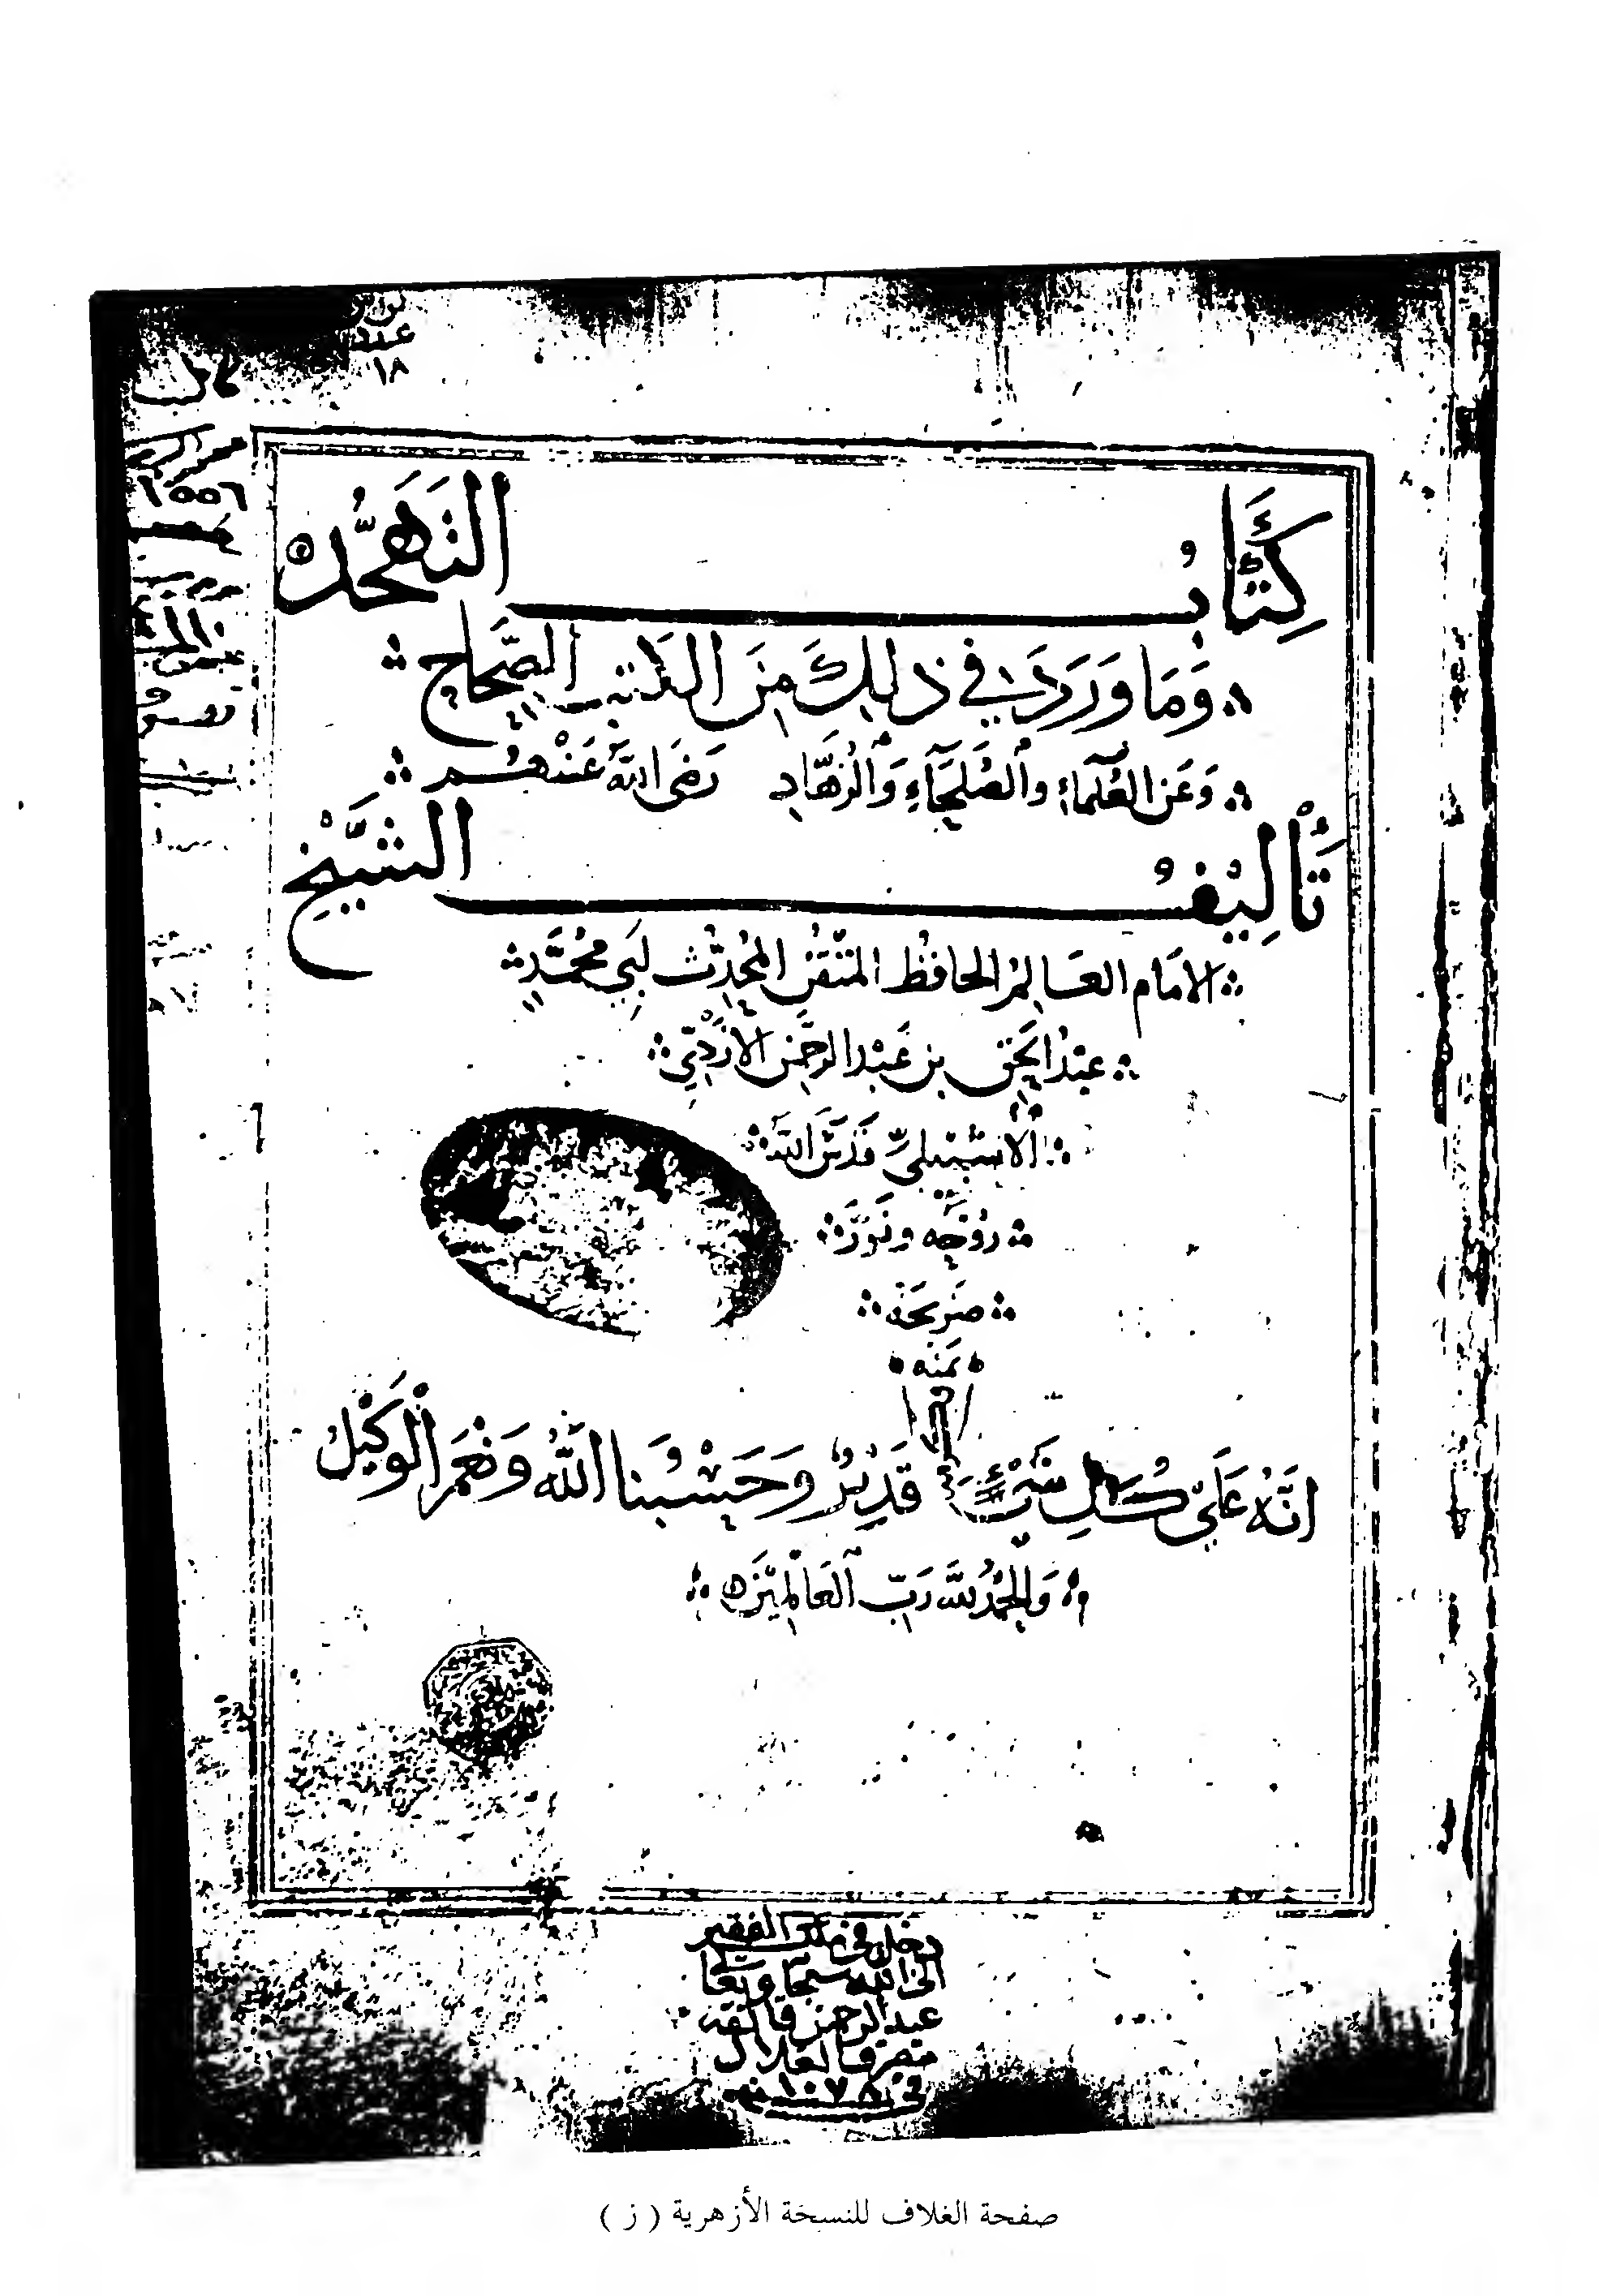 عدد
١٨
١٥٥٦
كِتَابُ التَهَجُّد
وَمَا وَرَدَ في ذَلِكَ مِنَ الكتب الصِّحَاح
وَعَن العُلَمَاءِ والصُلَحَاءِ وَالزُهَّادِ رَضىَ اللهُ عَنْهُم
تَأْلِيْفُ الشَّيْخِ
الامَام العَالِم الحافظ المتقن المحدِّث أبي مُحَمَّد
عَبْد الحَق بن عَبْد الرحمن الازْدِيّ
الاشبيلىّ قَدَسَ الله
رُوْحَه ونَوَّرَ
ضَرِيحَهُ
بمَنِه
انَّهُ عَلَى كُلِ شَيْءٍ قَدِيرٌ وَحَسْبُنا اللَّهُ وَنِعْمَ الْوَكِيْلُ
وَالحَمْدُ لله رَبّ العَالمِيْنَ
دخل في ملك الفقير
الى الله سبحا وتعا
عبد الرحمن
في ١٠٧٨ سنه
صفحة الغلاف للنسخة الأزهرية ( ز )